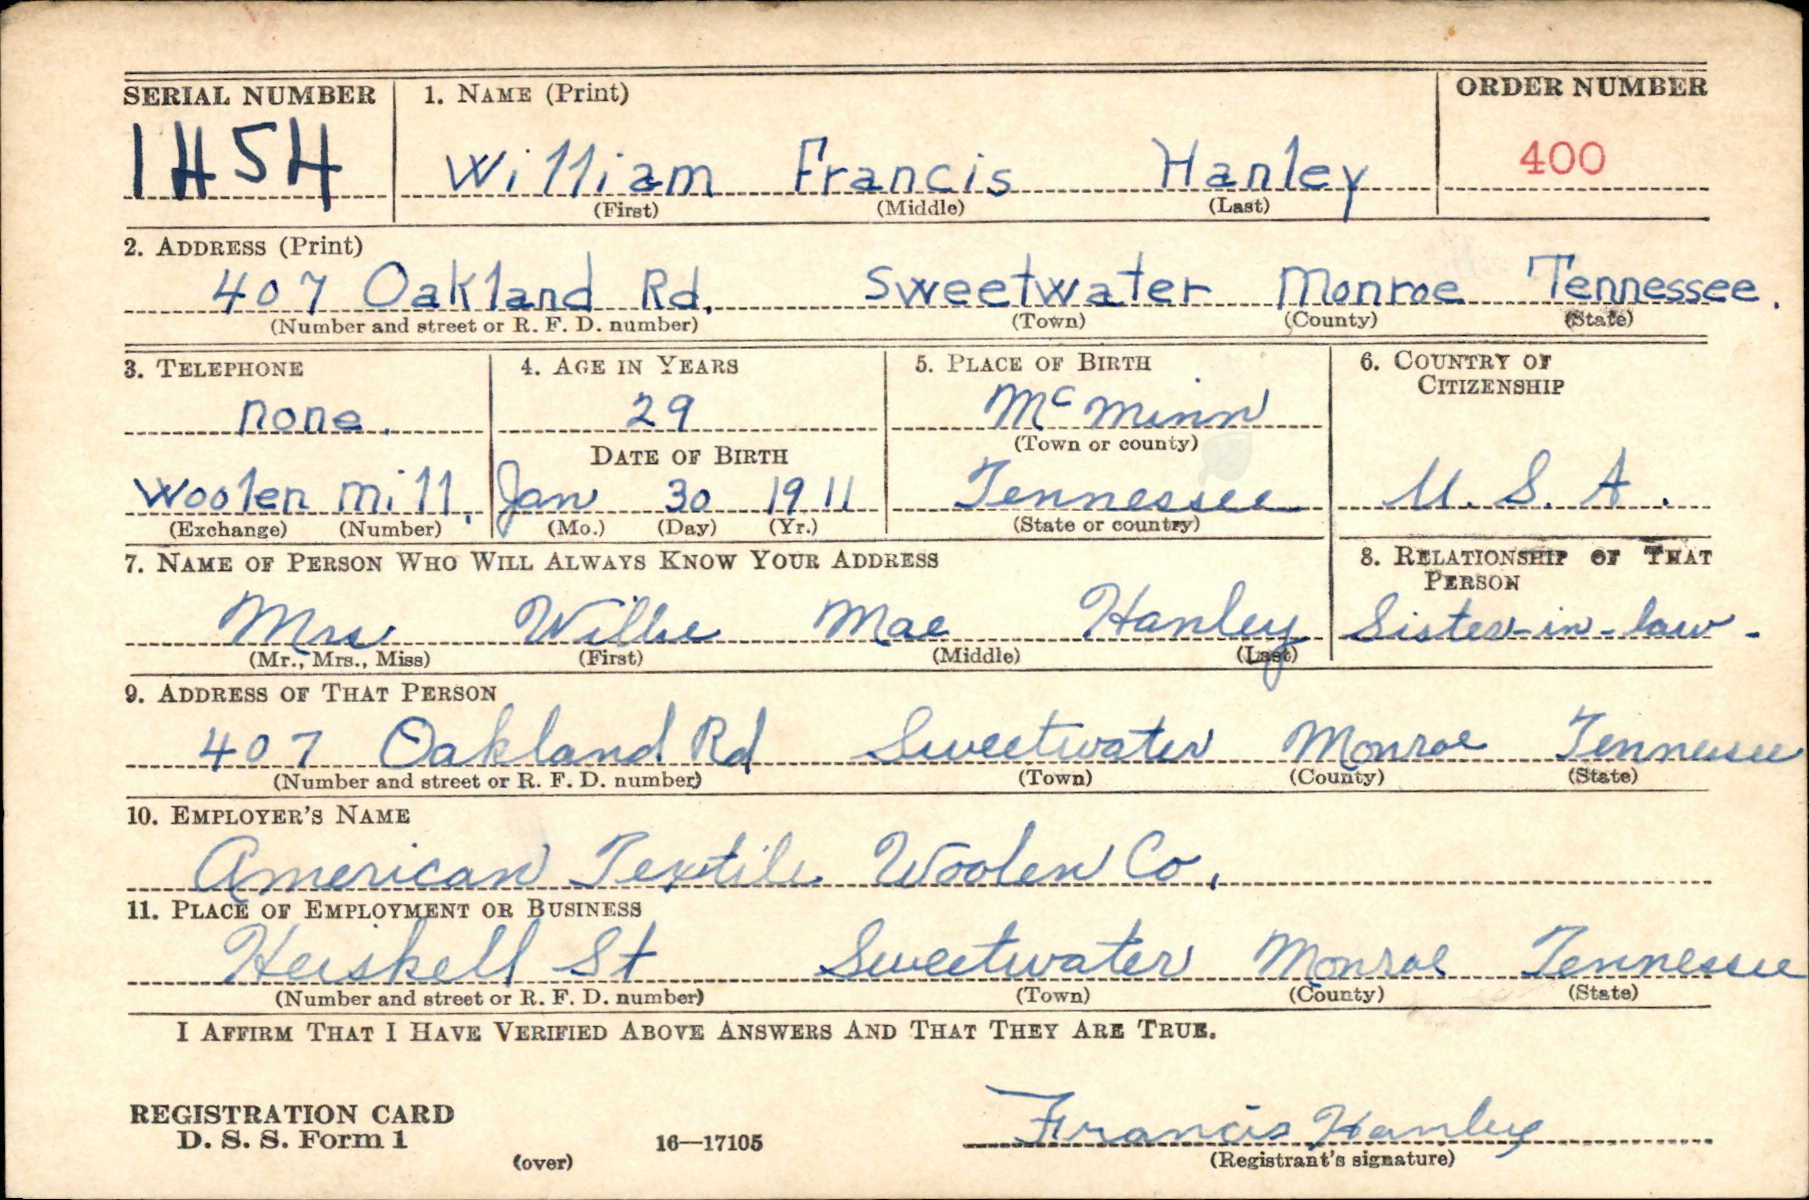 SERIAL NUMBER 1. NAME (Print) ORDER NUMBER
1454 William Francis Hanley 400
(First) (Middle) (Last)
2. ADDRESS (Print)
407 Oakland Rd. Sweetwater Monroe Tennessee.
(Number and street or R. F. D. number) (Town) (County) (State)
3. TELEPHONE 4. AGE IN YEARS 5. PLACE OF BIRTH 6. COUNTRY OF
CITIZENSHIP
none. 29 McMinn
(Town or county)
DATE OF BIRTH
Woolen Mill. Jan 30 1911 Tennessee U. S. A.
(Exchange) (Number) (Mo.) (Day) (Yr.) (State or country)
7. NAME OF PERSON WHO WILL ALWAYS KNOW YOUR ADDRESS 8. RELATIONSHIP OF THAT
PERSON
Mrs Willie Mae Hanley Sister-in-law.
(Mr., Mrs., Miss) (First) (Middle) (Last)
9. ADDRESS OF THAT PERSON
407 Oakland Rd Sweetwater Monroe Tennessee
(Number and street or R. F. D. number) (Town) (County) (State)
10. EMPLOYER'S NAME
American Textile Woolen Co.
11. PLACE OF EMPLOYMENT OR BUSINESS
Heiskell St Sweetwater Monroe Tennessee
(Number and street or R. F. D. number) (Town) (County) (State)
I AFFIRM THAT I HAVE VERIFIED ABOVE ANSWERS AND THAT THEY ARE TRUE.
REGISTRATION CARD
D. S. S. Form 1 16—17105 Francis Hanley
(over) (Registrant's signature)